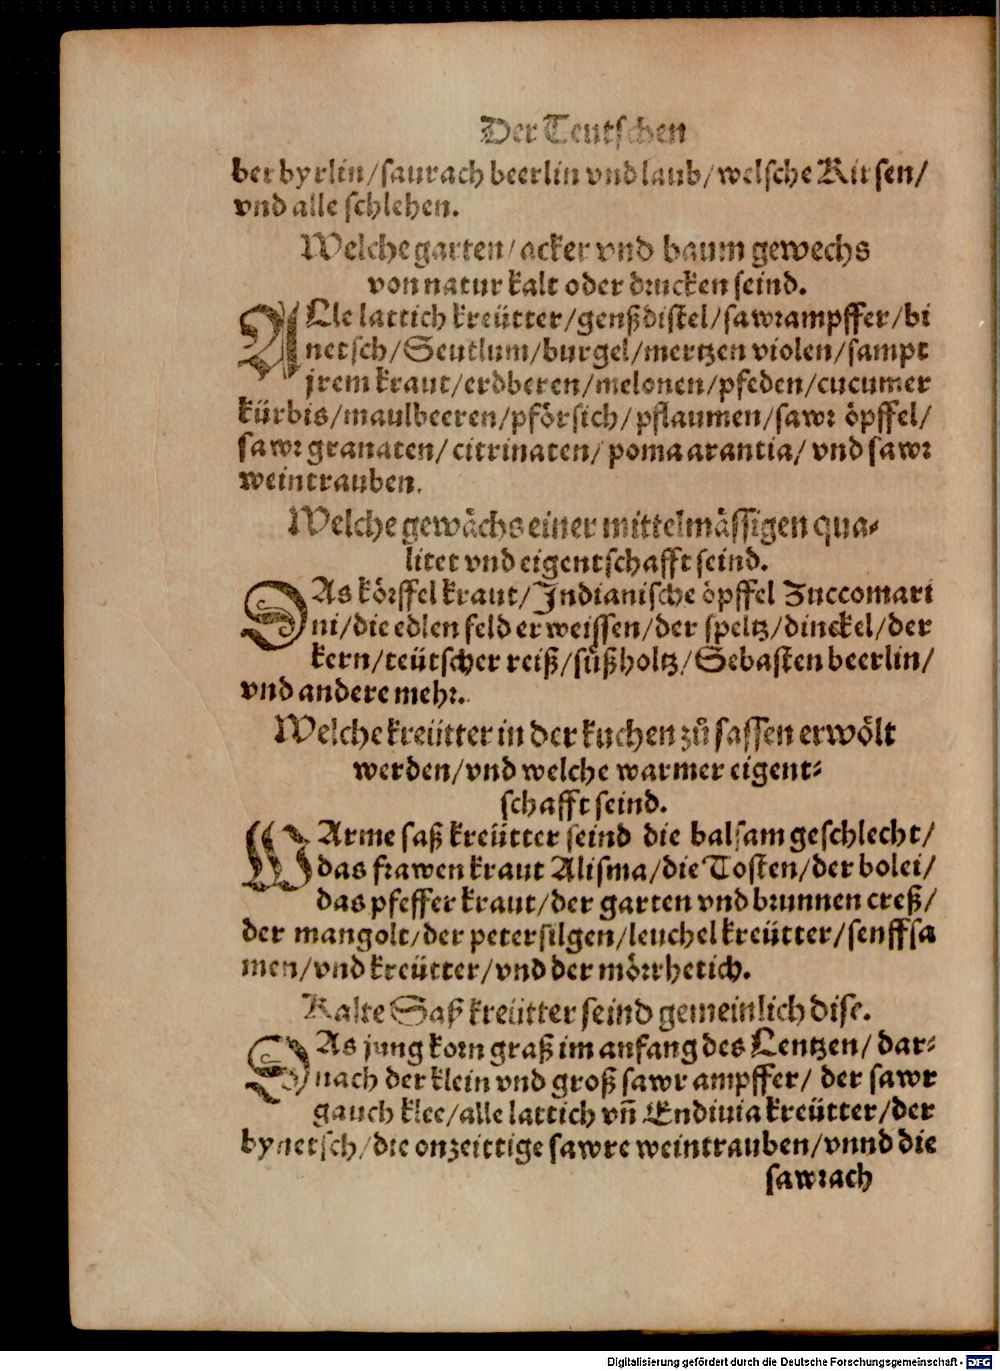 Der Teutschen
berbyrlin/saurach beerlin vnd laub/welsche Kirsen/
vnd alle schlehen.
Welche garten/acker vnd baum gewechs
von natur kalt oder drucken seind.
ALle lattich kreütter/genßdistel/sawrampffer/bi
netsch/Seutlum/burgel/mertzen violen/sampt
jrem kraut/erdberen/melonen/pfeden/cucumer
kürbis/maulbeeren/pförsich/pflaumen/sawr öpffel/
sawr granaten/citrinaten/poma arantia/vnd sawr
weintrauben.
Welche gewächs einer mittelmässigen qua-
litet vnd eigentschafft seind.
DAs körffel kraut/Indianische öpffel Zuccomari
ni/die edlen feld erweissen/der speltz/dinckel/der
kern/teütscher reiß/süßholtz/Sebasten beerlin/
vnd andere mehr.
Welche kreütter in der kuchen zů sassen erwölt
werden/vnd welche warmer eigent-
schafft seind.
WArme saß kreütter seind die balsam geschlecht/
das frawen kraut Alisma/die Tosten/der bolei/
das pfeffer kraut/der garten vnd brunnen creß/
der mangolt/der petersilgen/leuchel kreütter/senffsa
men/vnd kreütter/vnd der mörrhetich.
Kalte Saß kreütter seind gemeinlich dise.
DAs jung korn graß im anfang des Lentzen/dar-
nach der klein vnd groß sawr ampffer/der sawr
gauch klee/alle lattich vñ Endiuia kreütter/der
bynetsch/die onzeittige sawre weintrauben/vnnd die
sawrach
Digitalisierung gefördert durch die Deutsche Forschungsgemeinschaft - DFG